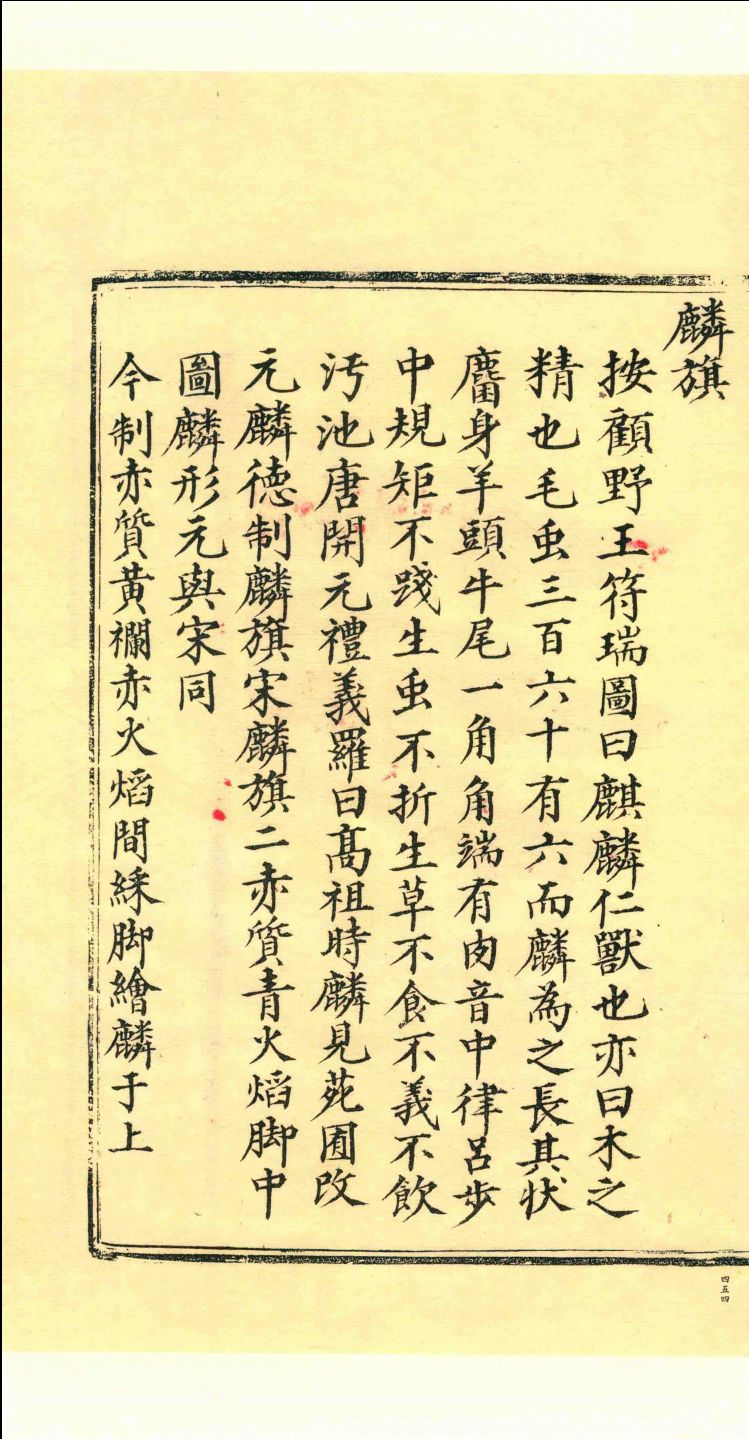 麟旗
按顧野王符瑞圖曰麒麟仁獸也亦曰木之
精也毛虫三百六十有六而麟為之長其状
麕身羊頭牛尾一角角端有肉音中律呂歩
中規矩不踐生虫不折生草不食不義不飲
汚池唐開元禮義羅曰髙祖時麟見苑囿改
元麟徳制麟旗宋麟旗二赤質青火熖脚中
圖麟形元與宋同
今制赤質黄襴赤火熖間綵脚繪麟于上
四五四